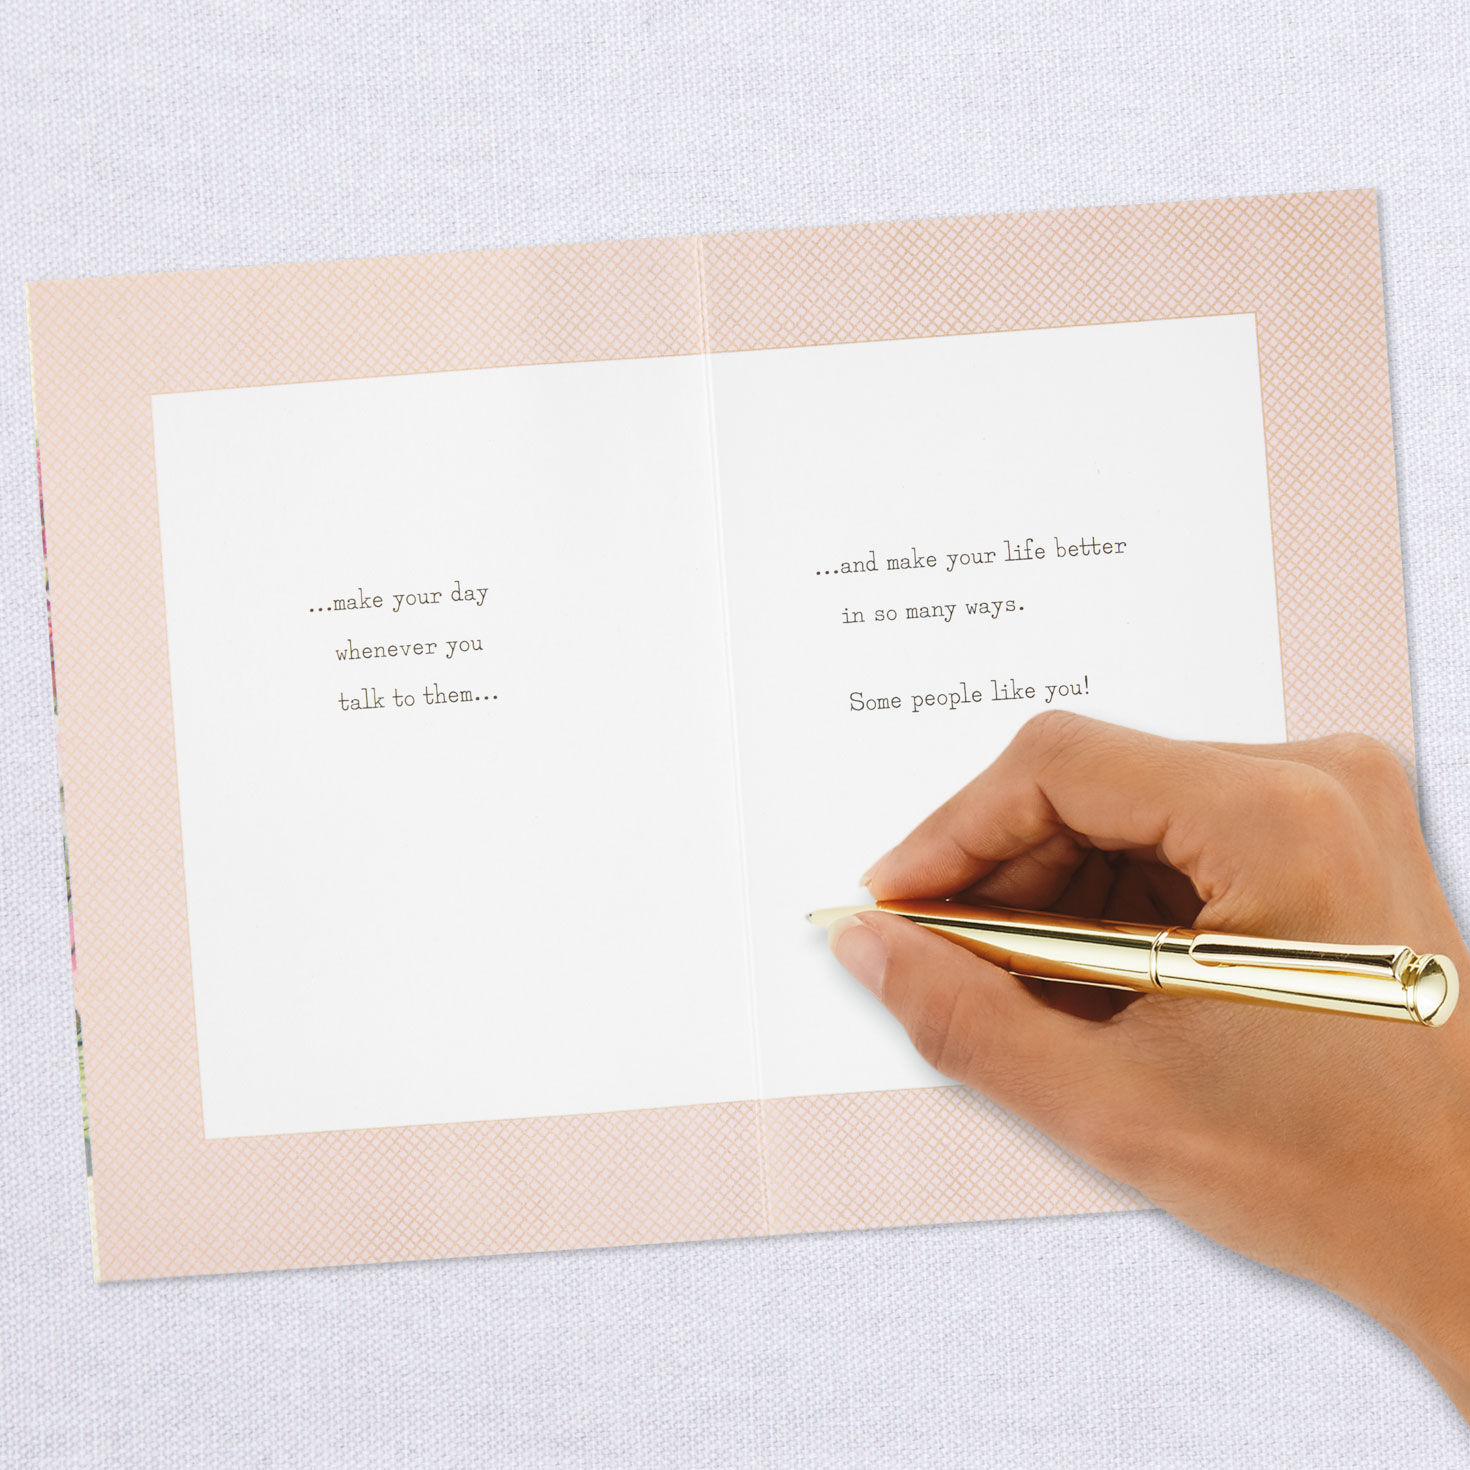 ...make your day
whenever you
talk to them...
...and make your life better
in so many ways.
Some people like you!